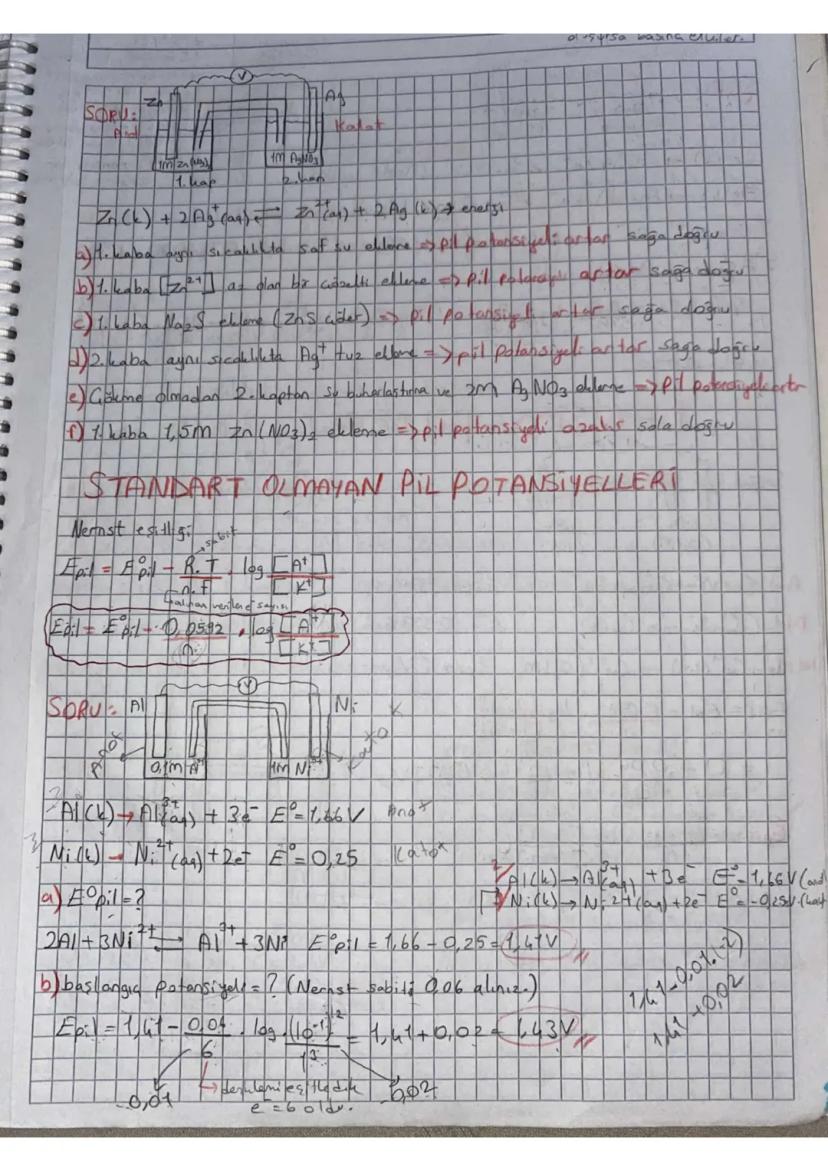 oluşursa basınç etkiler.
V
Zn
Ag
SORU:
Anot
Katot
1M Zn(NO3)2
1M AgNO3
1. kap
2. kap
Zn(k) + 2Ag+(aq) ⇌ Zn2+(aq) + 2Ag(k) + enerji
a) 1. kaba aynı sıcaklıkta saf su ekleme => pil potansiyeli artar sağa doğru
b) 1. kaba [Zn2+] az olan bir çözelti ekleme => pil potansiyeli artar sağa doğru
c) 1. kaba Na2S ekleme (ZnS çöker) => pil potansiyeli artar sağa doğru
d) 2. kaba aynı sıcaklıkta Ag+ tuz ekleme => pil potansiyeli artar sağa doğru
e) Çökme olmadan 2. kaptan su buharlaştırma ve 2M AgNO3 ekleme => pil potansiyeli artar
f) 1. kaba 1,5M Zn(NO3)2 ekleme => pil potansiyeli azalır sola doğru
STANDART OLMAYAN PİL POTANSİYELLERİ
Nernst eşitliği
sabit
Epil = E°pil - R.T/n.f . log [A+]/[K+]
alınan verilen e- sayısı
Epil = E°pil - 0,0592/n . log [A+]/[K+]
V
SORU: Al
Ni K
Anot
Katot
0,1M Al3+
1M Ni2+
Al(k) → Al3+(aq) + 3e- E° = 1,66 V Anot
Ni(k) → Ni2+(aq) + 2e- E° = 0,25 Katot
2/ Al(k) → Al3+(aq) + 3e- E° = 1,66 V (anot
3/ Ni(k) → Ni2+(aq) + 2e- E° = -0,25V (kat
a) E°pil = ?
2Al + 3Ni2+ ⇌ Al3+ + 3Ni E°pil = 1,66 - 0,25 = 1,41V
b) başlangıç potansiyeli = ? (Nernst sabiti 0,06 alınız.)
1,41 - 0,01.(-2)
1,41 + 0,02
Epil = 1,41 - 0,06/6 . log (10-1)2/13 = 1,41 + 0,02 = 1,43V
denklemi eşitledik
e = 6 oldu.
0,01
0,02